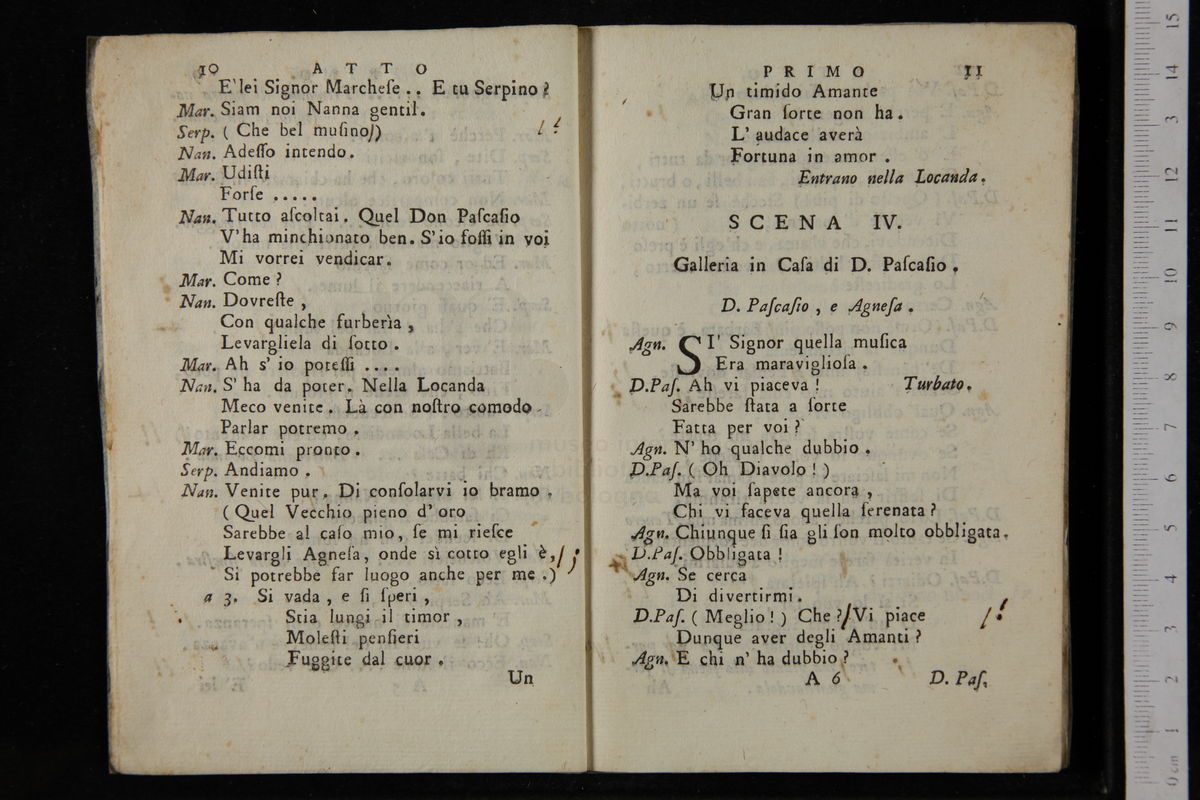 10 ATTO
E' lei Signor Marcheſe .. E tu Serpino?
Mar. Siam noi Nanna gentil.
Serp. ( Che bel muſino/) / !
Nan. Adeſſo intendo.
Mar. Udiſti
Forſe .....
Nan. Tutto aſcoltai. Quel Don Paſcaſio
V'ha minchionato ben. S'io foſſi in voi
Mi vorrei vendicar.
Mar. Come ?
Nan. Dovreſte ,
Con qualche furberìa ,
Levargliela di ſotto .
Mar. Ah s' io poteſſi ....
Nan. S' ha da poter. Nella Locanda
Meco venite . Là con noſtro comodo
Parlar potremo .
Mar. Eccomi pronto .
Serp. Andiamo .
Nan. Venite pur. Di conſolarvi io bramo .
( Quel Vecchio pieno d' oro
Sarebbe al caſo mio, ſe mi rieſce
Levargli Agneſa, onde sì cotto egli è, / ;
Si potrebbe far luogo anche per me .)
a 3. Si vada , e ſi ſperi ,
Stia lungi il timor ,
Moleſti penſieri
Fuggite dal cuor .
Un
PRIMO 11
Un timido Amante
Gran ſorte non ha .
L' audace averà
Fortuna in amor .
Entrano nella Locanda.
SCENA IV.
Galleria in Caſa di D. Paſcaſio .
D. Paſcaſio , e Agneſa .
Agn. SI' Signor quella muſica
Era maraviglioſa .
D.Paſ. Ah vi piaceva ! Turbato.
Sarebbe ſtata a ſorte
Fatta per voi ?
Agn. N' ho qualche dubbio .
D.Paſ. ( Oh Diavolo ! )
Ma voi ſapete ancora ,
Chi vi faceva quella ſerenata ?
Agn. Chiunque ſi ſia gli ſon molto obbligata.
D.Paſ. Obbligata !
Agn. Se cerca
Di divertirmi .
D.Paſ. ( Meglio ! ) Che ?/ Vi piace / !
Dunque aver degli Amanti ?
Agn. E chi n' ha dubbio ?
A 6 D. Paſ.
museo in
biblio
bologna
0 cm 1 2 3 4 5 6 7 8 9 10 11 12 13 14 15